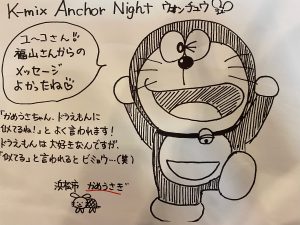 K-mix Anchor Night ウォンチュウ
ユーコさん!!
福山さんからの
メッセージ
よかったね♡
「かめうさちゃん、ドラえもんに
似てるね!」とよく言われます!
ドラえもんは大好きなんですが、
「似てる」と言われるとビミョウ…(笑)
浜松市 かめうさぎ